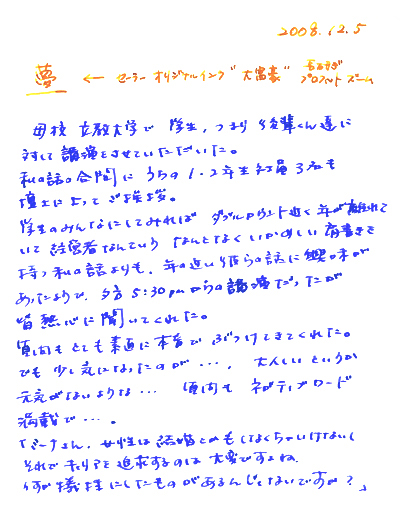 2008.12.5
夢 ← セーラー オリジナルインク "大富豪" 長原さん プロフィット ズーム
母校 立教大学で 学生、つまり 後輩くん達に
対して 講演をさせていただいた。
私の話の合間に うちの 1、2年生社員 3名も
壇上に立って ご挨拶。
学生のみんなにしてみれば ダブルカウント近く 年が離れて
いて 経営者なんていう なんとなく いかめしい 肩書きを
持つ 私の話よりも、年の近い 彼らの話に 興味が
あったようで、夕方 5:30pmからの 講演だったが
皆 熱心に聞いてくれた。
質問も とても 素直に 本音で ぶつけてきてくれた。
でも 少し 気になったのが …、 大人しいというか
元気がないような … 質問も ネガティブロード
満載で …。
「ミーナさん、女性は 結婚とかも しなくちゃいけないし
それで キャリアを 追求するのは 大変ですよね。
何か 犠牲にしたものが あるんじゃないですか？」